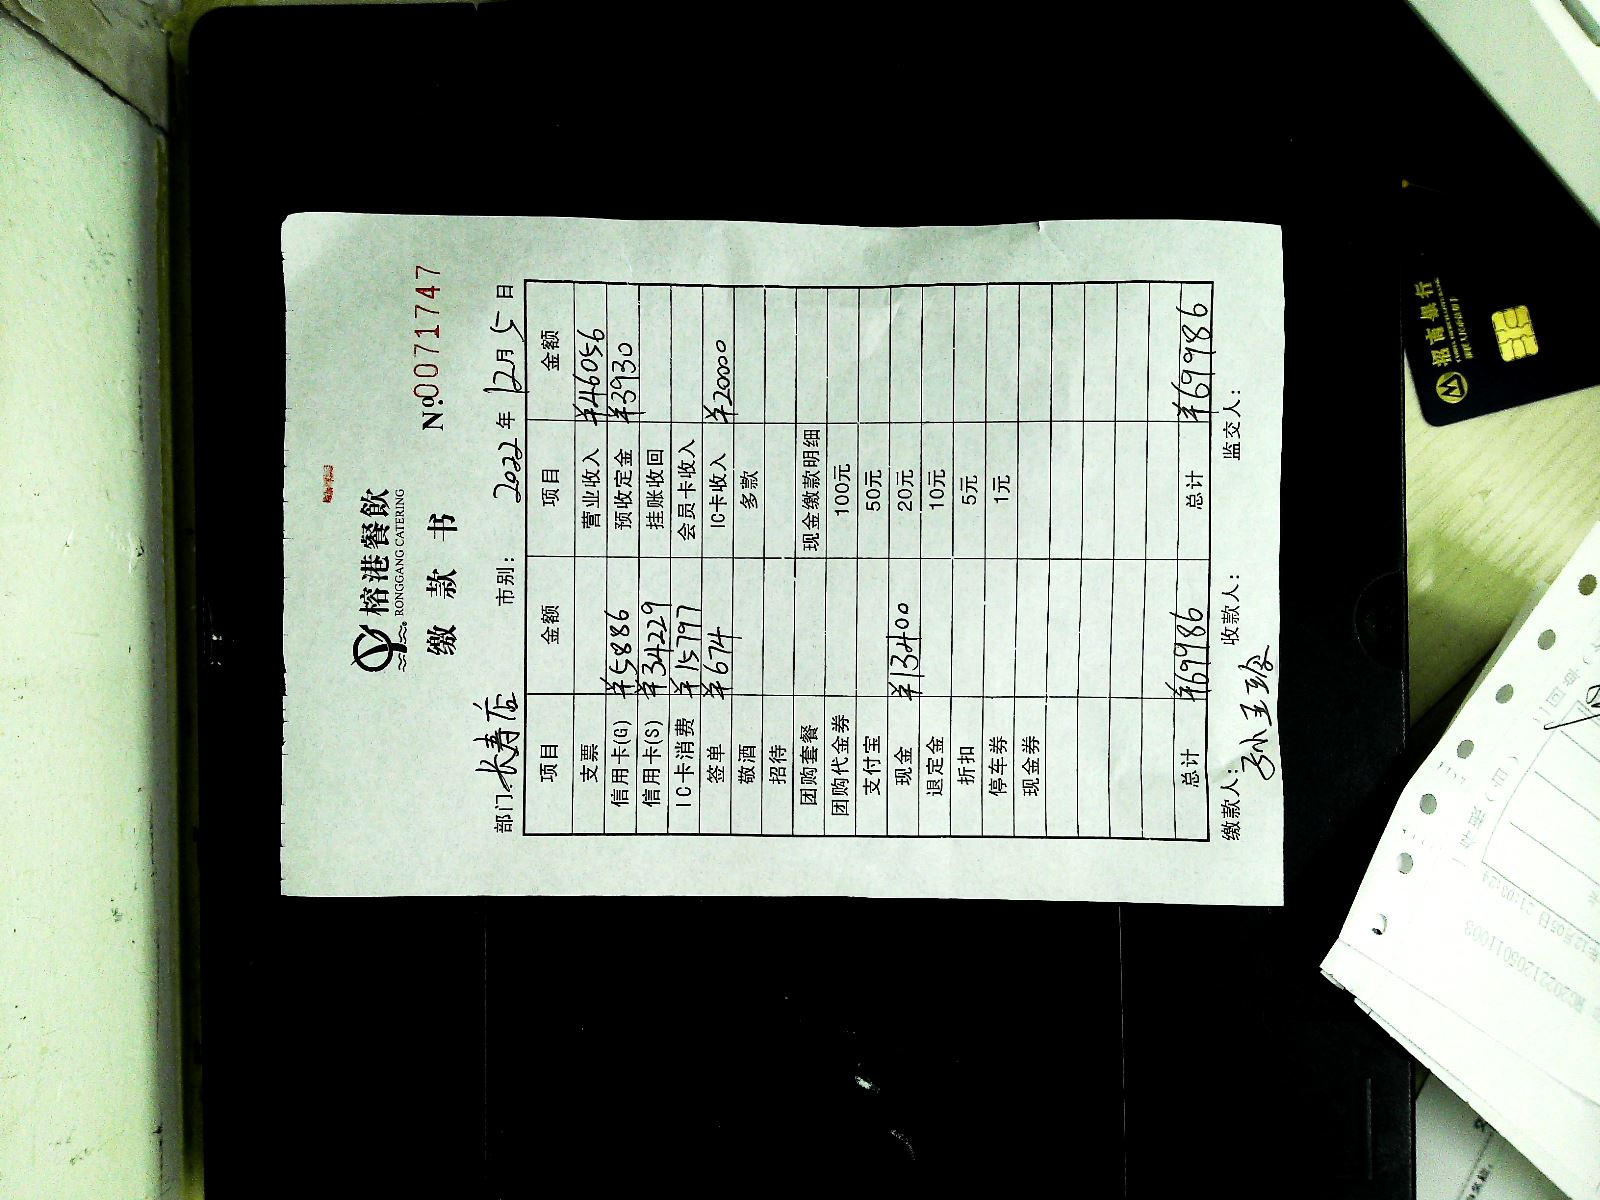 榕港餐飲
RONGGANG CATERING
缴 款 书
№.0071747
部门: 长寿店 市别: 2022 年 12 月 5 日
项目 金额 项目 金额
支票 营业收入 ¥46056
信用卡(G) ¥5886 预收定金 ¥3930
信用卡(S) ¥34229 挂账收回
IC卡消费 ¥15797 会员卡收入
签单 ¥674 IC卡收入 ¥20000
敬酒 多款
招待
团购套餐 现金缴款明细
团购代金券 100元
支付宝 50元
现金 ¥13400 20元
退定金 10元
折扣 5元
停车券 1元
现金券
总计 ¥69986 总计 ¥69986
缴款人: 收款人: 监交人:
招商银行